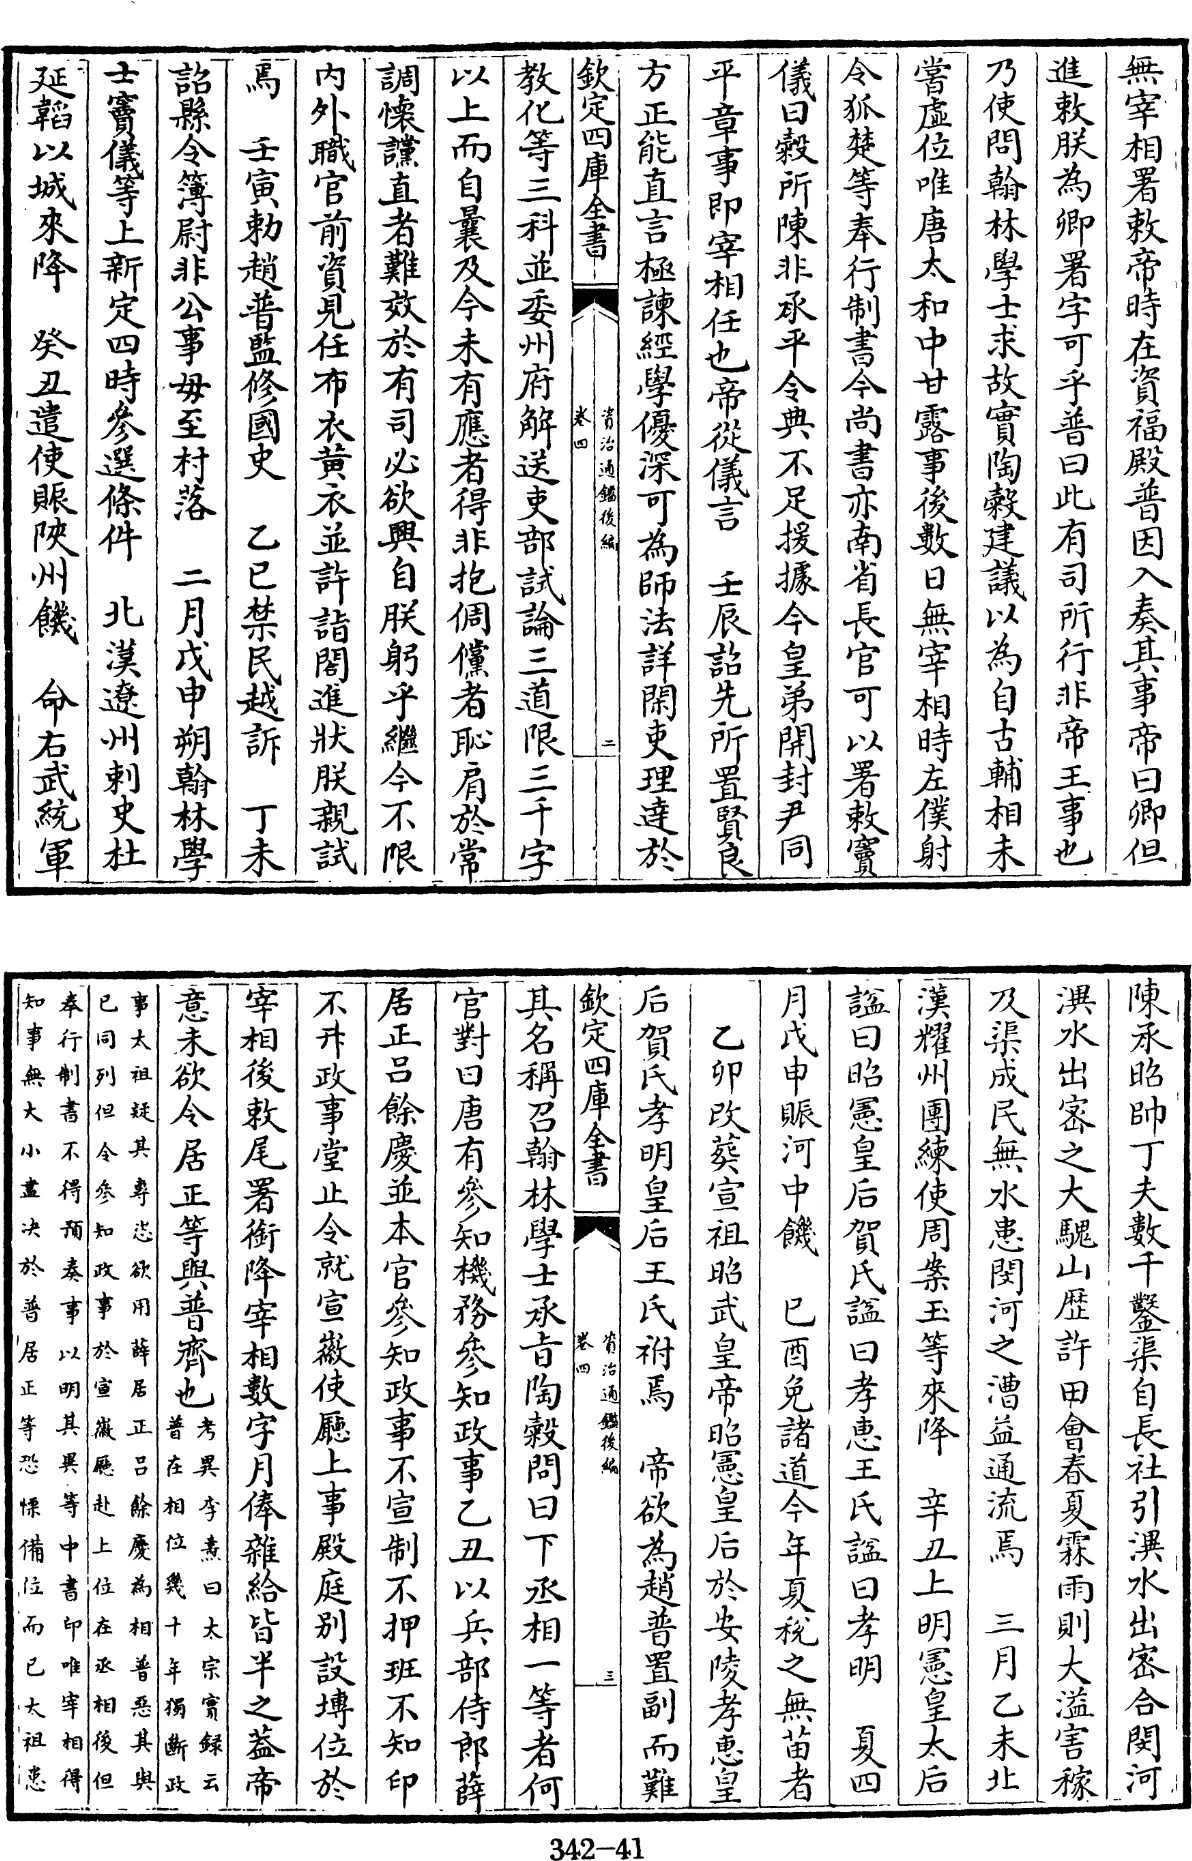 無宰相署敕帝時在資福殿普因入奏其事帝曰卿但
進敕朕為卿署字可乎普曰此有司所行非帝王事也
乃使問翰林學士求故實陶穀建議以為自古輔相未
嘗虛位唯唐太和中甘露事後數日無宰相時左僕射
令狐楚等奉行制書今尚書亦南省長官可以署敕竇
儀曰穀所陳非承平令典不足援據今皇弟開封尹同
平章事即宰相任也帝從儀言　壬辰詔先所置賢良
方正能直言極諫經學優深可為師法詳閑吏理達於
欽定四庫全書　資治通鑑後編　卷四　二
教化等三科並委州府解送吏部試論三道限三千字
以上而自曩及今未有應者得非抱倜儻者恥肩於常
調懷讜直者難效於有司必欲興自朕躬乎繼今不限
內外職官前資見任布衣黃衣並許詣閤進狀朕親試
焉　壬寅勅趙普監修國史　乙巳禁民越訴　丁未
詔縣令簿尉非公事毋至村落　二月戊申朔翰林學
士竇儀等上新定四時參選條件　北漢遼州刺史杜
延韜以城來降　癸丑遣使賑陝州饑　命右武統軍
陳承昭帥丁夫數千鑿渠自長社引潩水出密合閔河
潩水出密之大騩山歷許田會春夏霖雨則大溢害稼
及渠成民無水患閔河之漕益通流焉　三月乙未北
漢耀州團練使周審玉等來降　辛丑上明憲皇太后
諡曰昭憲皇后賀氏諡曰孝惠王氏諡曰孝明　夏四
月戊申賑河中饑　己酉免諸道今年夏稅之無苗者
乙卯改葬宣祖昭武皇帝昭憲皇后於安陵孝惠皇
后賀氏孝明皇后王氏祔焉　帝欲為趙普置副而難
欽定四庫全書　資治通鑑後編　卷四　三
其名稱召翰林學士承旨陶穀問曰下丞相一等者何
官對曰唐有參知機務參知政事乙丑以兵部侍郎薛
居正呂餘慶並本官參知政事不宣制不押班不知印
不升政事堂止令就宣徽使廳上事殿庭別設塼位於
宰相後敕尾署銜降宰相數字月俸雜給皆半之蓋帝
意未欲令居正等與普齊也考異李燾曰太宗實錄云
普在相位幾十年獨斷政
事太祖疑其專恣欲用薛居正呂餘慶為相普惡其與
已同列但令參知政事於宣徽廳赴上位在丞相後但
奉行制書不得預奏事以明其異等中書印唯宰相得
知事無大小盡決於普居正等恐慄備位而已太祖患
342-41